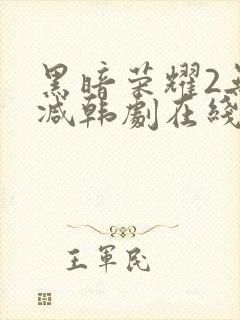 黑暗荣耀2无
减韩剧在线
王军民